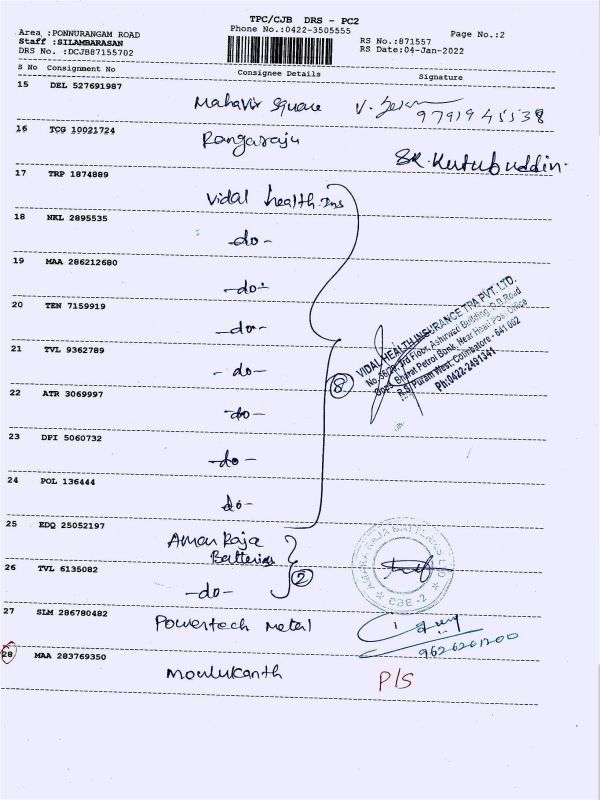 TPC/CJB DRS - PC2
Area :PONNURANGAM ROAD
Phone No.:0422-3505555
Page No.:2
Staff :SILAMBARASAN
RS No.:871557
DRS No. :DCJB87155702
RS Date:04-Jan-2022
S No Consignment No Consignee Details Signature
15 DEL 527691987
Mahavir Square V. 9791945538
16 TCG 10021724
Rangaraju
SK. Kutubuddin.
17 TRP 1874889
Vidal health Ins
18 NKL 2895535
-do-
19 MAA 286212680
-do-
20 TEN 7159919
-do-
21 TVL 9362789
-do-
22 ATR 3069997
-do-
23 DPI 5060732
-do-
24 POL 136444
do-
8
VIDAL HEALTH INSURANCE TPA PVT. LTD.
3rd Floor, Ashirwad Building, D.B.Road
Opp. Bharat Petrol Bunk, Near Head Post Office
R.S. Puram West, Coimbatore - 641 002
Ph:0422-2491341
25 EDQ 25052197
Amar Raja
Batteries
26 TVL 6135082
-do-
2
RAJA BATTERIES
CBE-2
27 SLM 286780482
Powertech Metal
9626261200
28 MAA 283769350
Moulukanth P/S